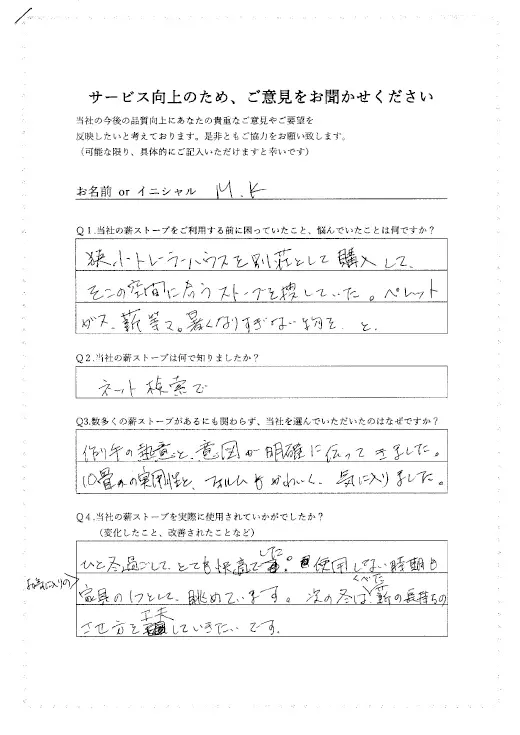 サービス向上のため、ご意見をお聞かせください
当社の今後の品質向上にあなたの貴重なご意見やご要望を
反映したいと考えております。是非ともご協力をお願い致します。
(可能な限り、具体的にご記入いただけますと幸いです)
お名前 or イニシャル M.K
Q1.当社の薪ストーブをご利用する前に困っていたこと、悩んでいたことは何ですか?
狭小トレーラーハウスを別荘として購入して、
そこの空間に合うストーブを捜していた。ペレット
ガス、薪等で。暑くなりすぎない物を、と。
Q2.当社の薪ストーブは何で知りましたか?
ネット検索で
Q3.数多くの薪ストーブがあるにも関わらず、当社を選んでいただいたのはなぜですか?
作り手の熱意と、意図が明確に伝ってきました。
10畳への実用性と、フォルムもかわいく、気に入りました。
Q4.当社の薪ストーブを実際に使用されていかがでしたか?
(変化したこと、改善されたことなど)
ひと冬過ごして、とても快適でした。使用しない時期も
お気に入りの家具の1つとして、眺めています。次の冬はくべた薪の長持ちの
させ方を工夫していきたいです。